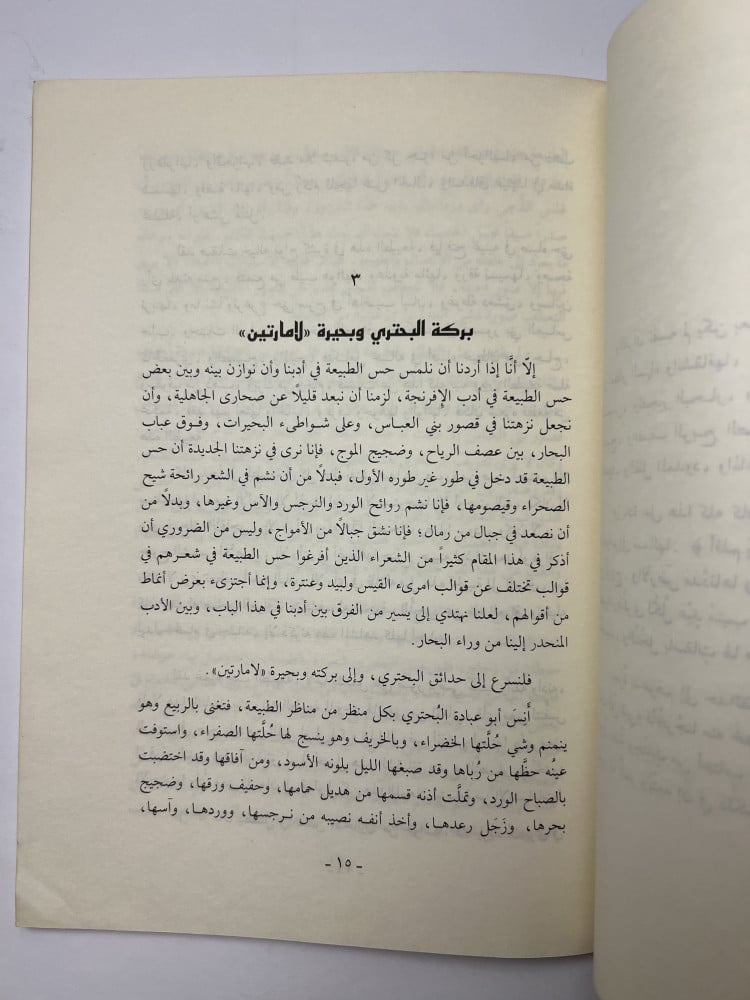 ٣
بركة البحتري وبحيرة «لامارتين»
إلّا أنَّا إذا أردنا أن نلمس حس الطبيعة في أدبنا وأن نوازن بينه وبين بعض
حس الطبيعة في أدب الإفرنجة، لزمنا أن نبعد قليلًا عن صحارى الجاهلية، وأن
نجعل نزهتنا في قصور بني العباس، وعلى شواطىء البحيرات، وفوق عباب
البحار، بين عصف الرياح، وضجيج الموج، فإنا نرى في نزهتنا الجديدة أن حس
الطبيعة قد دخل في طور غير طوره الأول، فبدلًا من أن نشم في الشعر رائحة شيح
الصحراء وقيصومها، فإنا نشم روائح الورد والنرجس والآس وغيرها، وبدلًا من
أن نصعد في جبال من رمال؛ فإنا نشق جبالًا من الأمواج، وليس من الضروري أن
أذكر في هذا المقام كثيراً من الشعراء الذين أفرغوا حس الطبيعة في شعرهم في
قوالب تختلف عن قوالب امرىء القيس ولبيد وعنترة، وإنما أجتزىء بعرض أنماط
من أقوالهم، لعلنا نهتدي إلى يسير من الفرق بين أدبنا في هذا الباب، وبين الأدب
المنحدر إلينا من وراء البحار.
فلنسرع إلى حدائق البحتري، وإلى بركته وبحيرة «لامارتين».
أَنِسَ أبو عبادة البُحتري بكل منظر من مناظر الطبيعة، فتغنى بالربيع وهو
ينمنم وشي حُلَّتها الخضراء، وبالخريف وهو ينسج لها حُلَّتها الصفراء، واستوفت
عينُه حظَّها من رُباها وقد صبغها الليل بلونه الأسود، ومن آفاقها وقد اختضبت
بالصباح الورد، وتملَّت أذنه قسمها من هديل حمامها، وحفيف ورقها، وضجيج
بحرها، وزَجَل رعدها، وأخذ أنفه نصيبه من نرجسها، ووردها، وآسها،
- ١٥ -